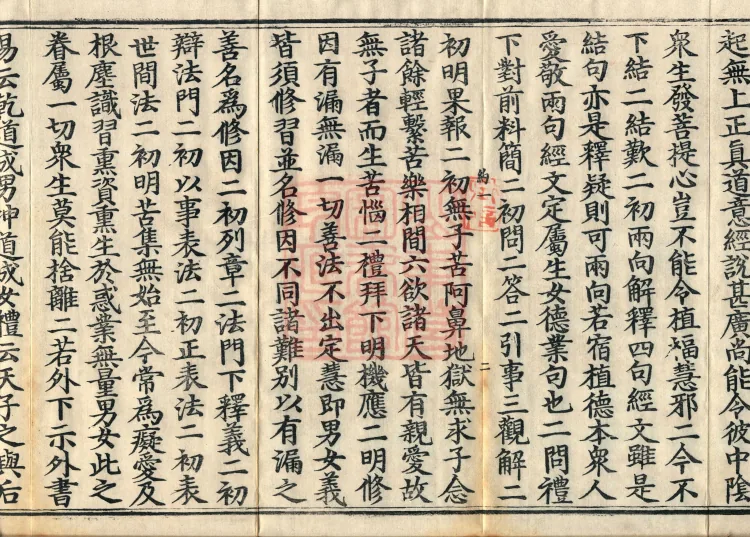 起無上正眞道意經說甚廣尚能令彼中陰
衆生發菩提心豈不能令植福慧邪二今不
下結二結歎二初兩句解釋四句經文雖是
結句亦是釋疑則可兩向若宿植德本衆人
愛敬兩句經文定屬生女德業句也二問禮
下對前料簡二初問二答二引事三觀解二
初明果報二初無子苦阿鼻地獄無求子念
諸餘輕繫苦樂相間六欲諸天皆有親愛故
無子者而生苦惱二禮拜下明機應二明修
因有漏無漏一切善法不出定慧即男女義
皆須修習並名修因不同諸難別以有漏之
善名爲修因二初列章二法門下釋義二初
辯法門二初以事表法二初正表法二初表
世間法二初明苦集無始至今常爲癡愛及
根塵識習熏資熏生於惑業無量男女此之
眷屬一切衆生莫能捨離二若外下示外書
易云乾道成男坤道成女禮云天子之與后